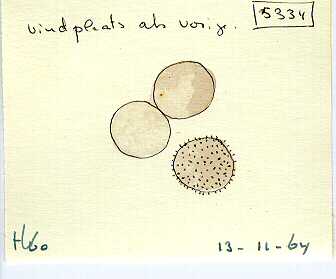 vindplaats als vorige.
5334
H60
13-11-64